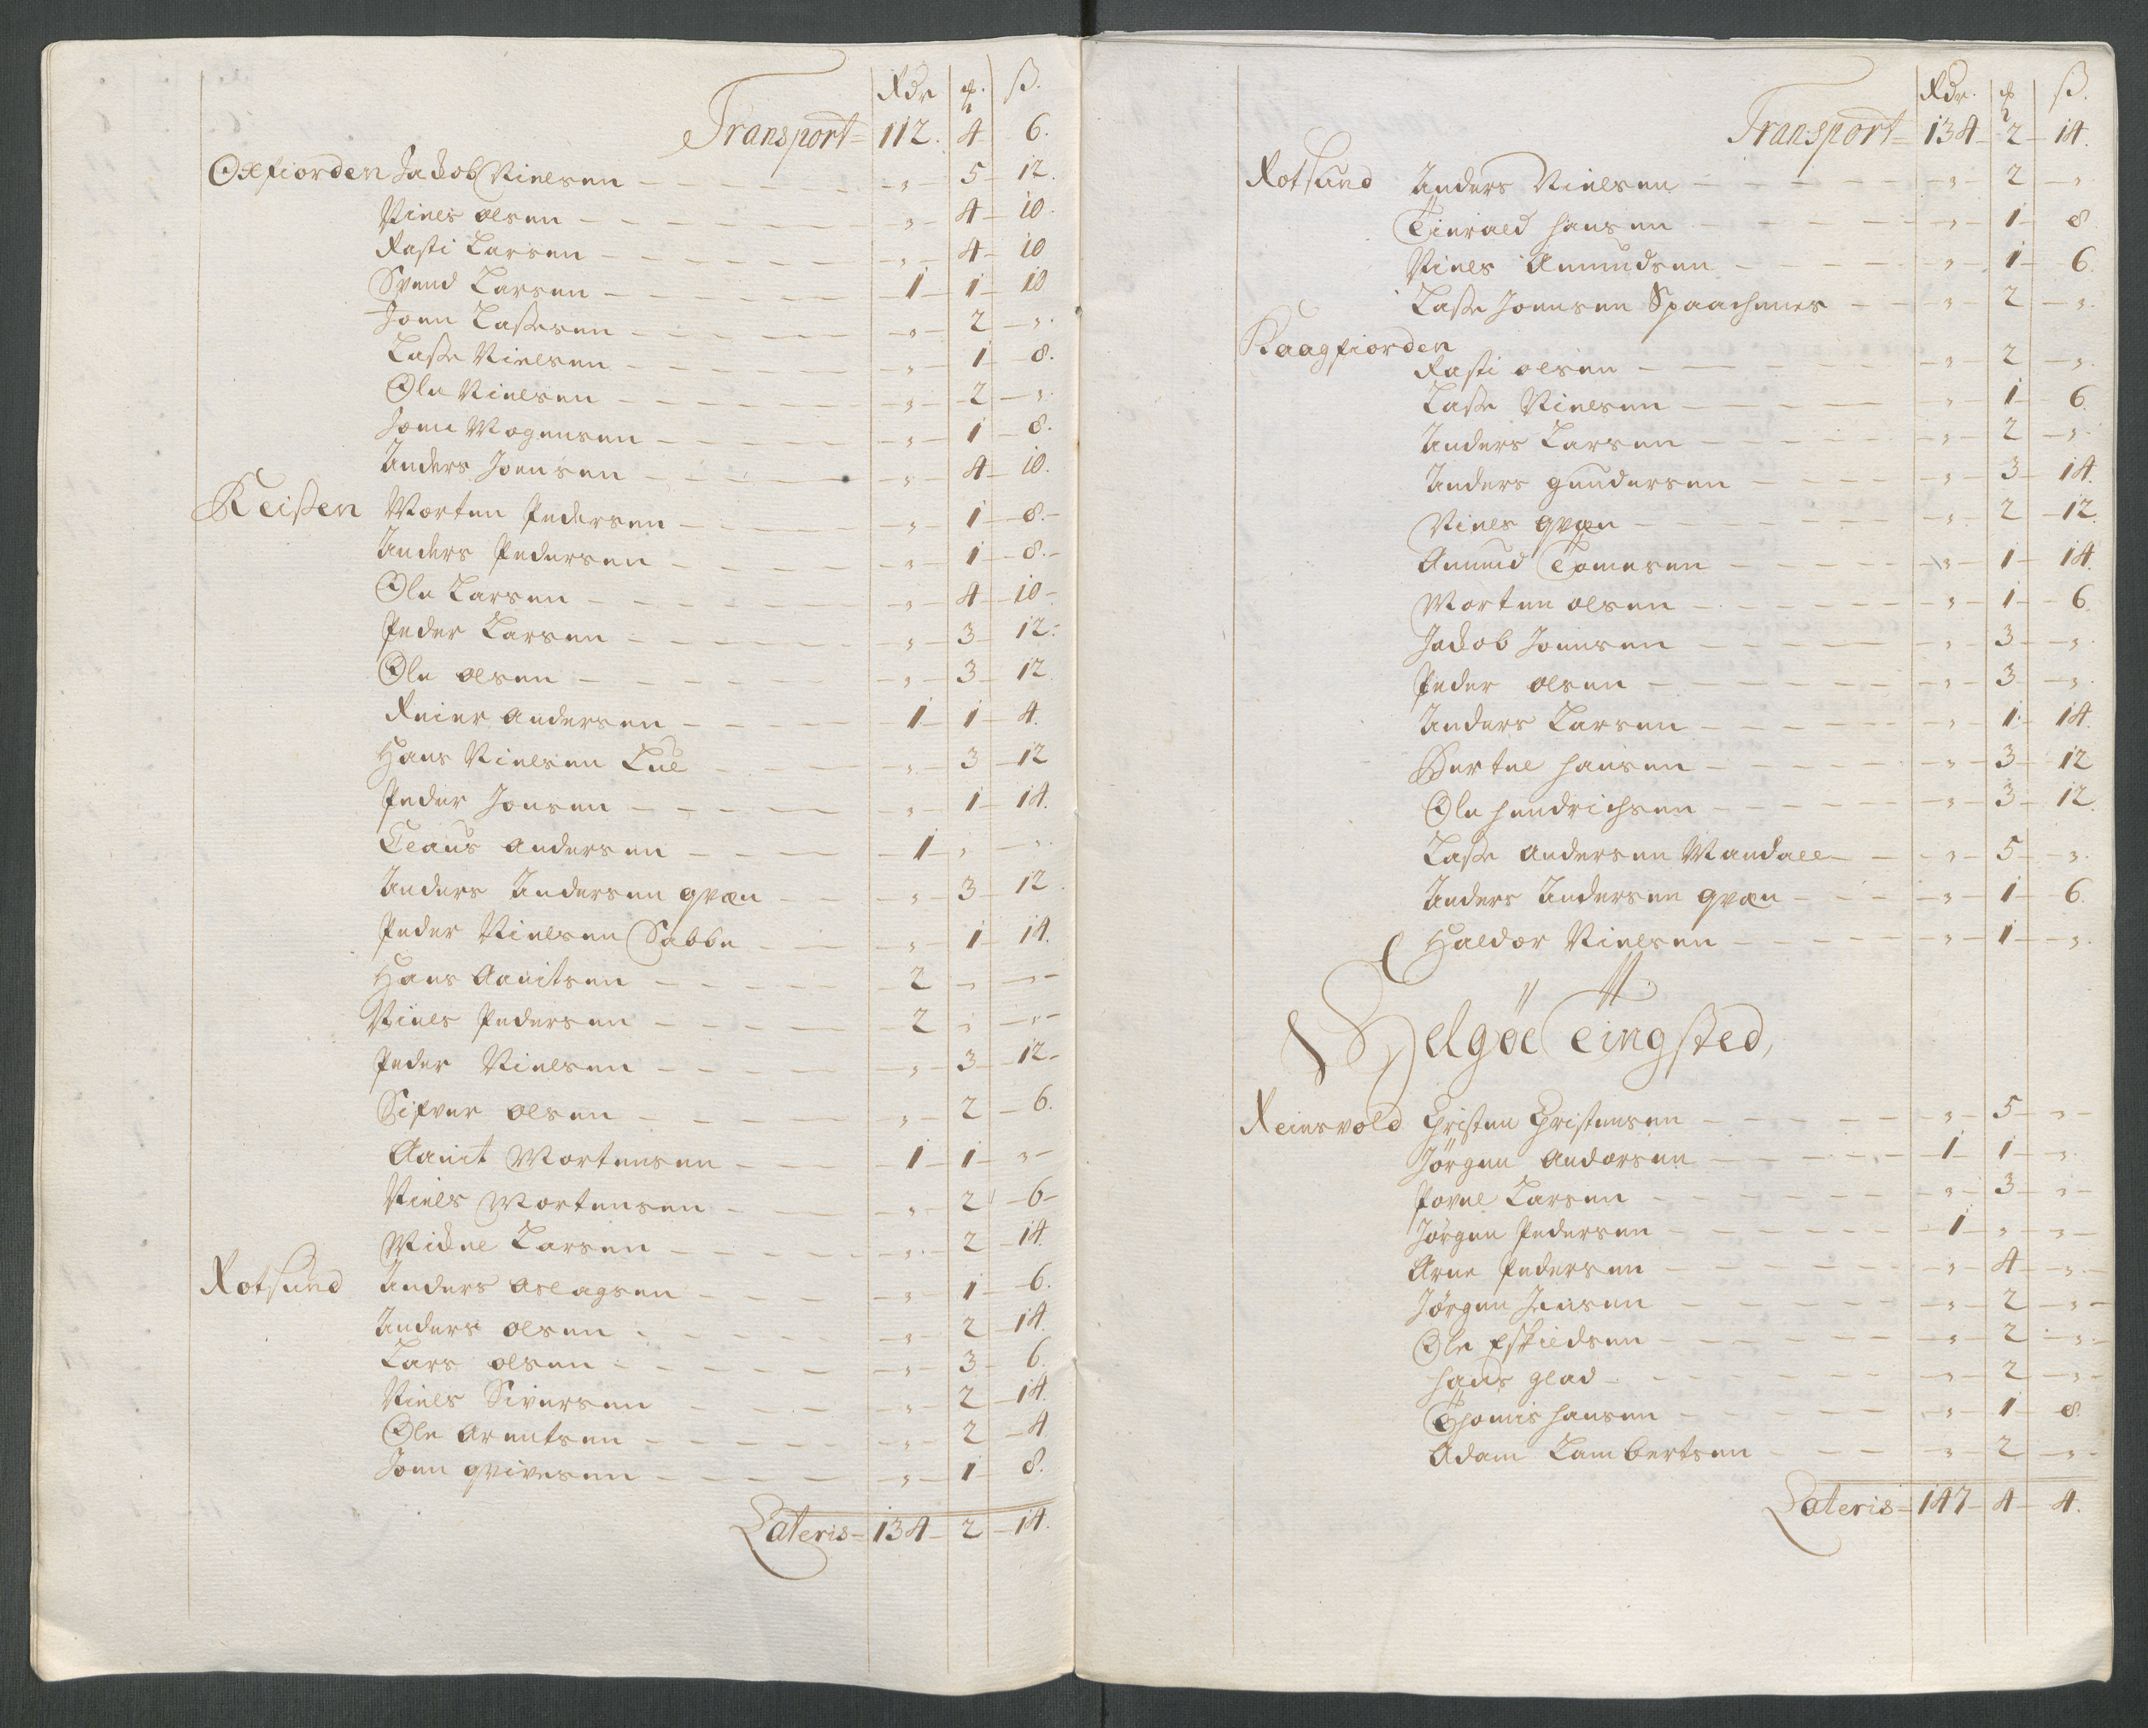 Rdr ß.
Transport 112. 4 6.
Oxfiorden Jackob Nielsen - „ 5 12.
Niels olsen - „ 4 10.
Rasti Larsen - „ 4 10
Svend Larsen - 1 1 10
Joen Lassesen - „ 2 „.
Lasse Nielsen - „ 1 8.
Ole Nielsen - „ 2 „.
Joen Mogensen - „ 1 8.
Anders Joensen - „ 4 10.
Reissen Morten Pedersen - „ 1 8.
Anders Pedersen - „ 1 8.
Ole Larsen - „ 4 10
Peder Larsen - „ 3 12.
Ole olsen - „ 3 12
Reier andersen - 1 1 4.
Hans Nielsen Lul - „ 3 12
Peder Jonsen - „ 1 14.
Claus andersen - 1 „ „.
Anders Andersen qvæn - „ 3 12.
Peder Nielsen Sabbe - „ 1 14.
Hans Aanitsen - 2 „ „
Niels Pedersen - 2 „ „
Peder Nielsen - „ 3 12
Sifver olsen - „ 2 6.
Aanit Mortensen - 1 1 „
Niels Mortensen - „ 2 6
Mickel Larsen - „ 2 14.
Rotsund Anders aslagsen - „ 1 6.
Anders olsen - „ 2 14.
Lars olsen - „ 3 6.
Niels Siversen - „ 2 14.
Ole arentsen - „ 2 4
Joen qvivesen - „ 1 8.
Lateris 134 2 14.
Rdr. ß.
Transport 134 2 14.
Rotsund Anders Nielsen - „ 2 „.
Tierald hansen - „ 1 8.
Niels Amundsen - „ 1 6.
Lasse Joensen Spaachenes - „ 2 „.
Kaagfiorden
Rasti olsen - „ 2 „.
Lasse Nielsen - „ 1 6
Anders Larsen - „ 2 „.
Anders gundersen - „ 3 14.
Niels qvæn - „ 2 12.
Amund Tomesen - „ 1 14.
Morten olsen - „ 1 6.
Jackob Joensen - „ 3 „.
Peder olsen - „ 3 „.
Anders Larsen - „ 1 14.
Bertel hansen - „ 3 12
Ole hendrichsen - „ 3 12.
Lasse andersen Mandall - „ 5 „.
Anders Andersen qvæn - „ 1 6.
Haldor Nielsen - „ 1 „.
Helgöe Tingsted,
Reinsvold Christen Christensen - „ 5 „
Jørgen andersen - 1 1 „.
Povel Larsen - „ 3 „
Jørgen Pedersen - 1 „ „
Arne Pedersen - „ 4 „.
Jørgen Jensen - „ 2 „
Ole Eskildsen - „ 2 „.
hans glad - „ 2 „.
Thomis hansen - „ 1 8.
Adam Lambertsen - „ 2 „.
Lateris 147 4 4.